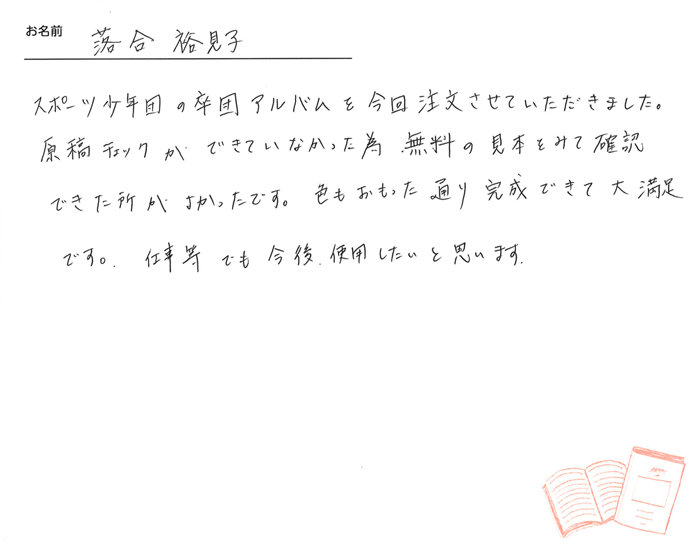 お名前 落合 裕見子
スポーツ少年団の卒団アルバムを今回注文させていただきました。
原稿チェックができていなかった為、無料の見本をみて確認
できた所がよかったです。色もおもった通り完成できて大満足
です。仕事等でも今後、使用したいと思います。